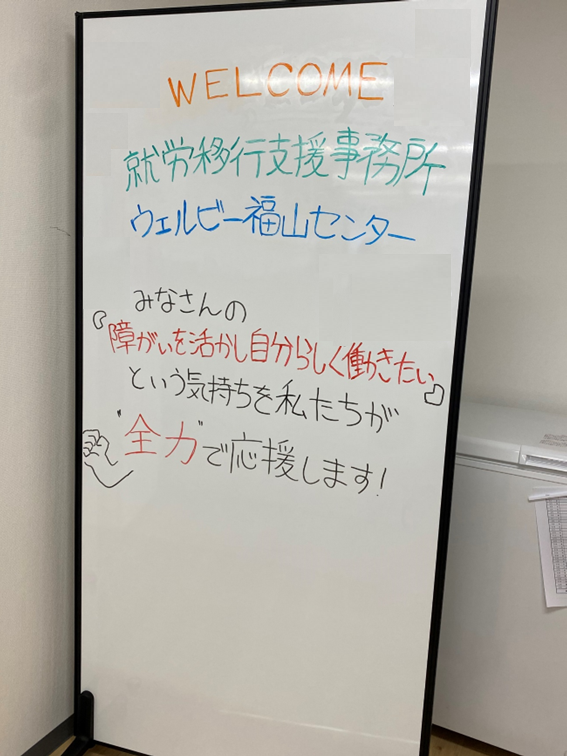 WELCOME
就労移行支援事務所
ウェルビー福山センター
みなさんの
『障がいを活かし自分らしく働きたい』
という気持ちを私たちが
"全力"で応援します!